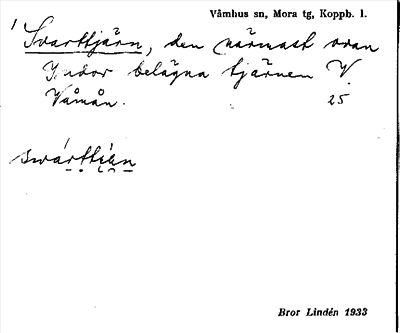 Våmhus sn, Mora tg, Koppb. l.
1 Svarttjärn, den närmast ovan
Indor belägna tjärnen V.
Våmån. 25
Bror Lindén 1933